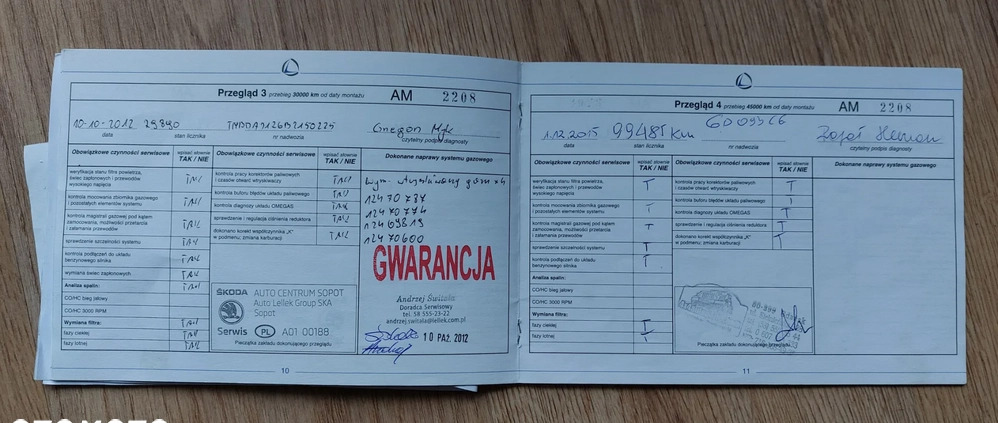 Przegląd 3 przebieg 30000 km od daty montażu AM 2208
10-10-2012 29890
data stan licznika nr nadwozia czytelny podpis diagnosty
Obowiązkowe czynności serwisowe wpisać słownie TAK / NIE Obowiązkowe czynności serwisowe wpisać słownie TAK / NIE Dokonane naprawy systemu gazowego
weryfikacja stanu filtra powietrza,
świec zapłonowych i przewodów
wysokiego napięcia
kontrola mocowania zbiornika gazowego
i pozostałych elementów systemu
kontrola magistrali gazowej pod kątem
zamocowania, możliwości przetarcia
i załamania przewodów
sprawdzenie szczelności systemu
kontrola podłączeń do układu
benzynowego silnika
wymiana świec zapłonowych
Analiza spalin:
CO/HC bieg jałowy
CO/HC 3000 RPM
Wymiana filtra:
fazy ciekłej
fazy lotnej
kontrola pracy korektorów paliwowych
i czasów otwarć wtryskiwaczy
kontrola buforu błędów układu paliwowego
kontrola diagnozy układu OMEGAS
sprawdzenie i regulacja ciśnienia reduktora
dokonano korekt współczynnika „K"
w podmenu; zmiana karburacji
12470774
12470600
GWARANCJA
ŠKODA AUTO CENTRUM SOPOT
Auto Lellek Group SKA
Sopot
Serwis PL A01 00188
Pieczątka zakładu dokonującego przeglądu
Andrzej Świtała
Doradca Serwisowy
tel. 58 555-23-22
andrzej.switala@lellek.com.pl
10 PAŹ. 2012
10
Przegląd 4 przebieg 45000 km od daty montażu AM 2208
1.12.2015 99485 km
data stan licznika nr nadwozia czytelny podpis diagnosty
Obowiązkowe czynności serwisowe wpisać słownie TAK / NIE Obowiązkowe czynności serwisowe wpisać słownie TAK / NIE Dokonane naprawy systemu gazowego
weryfikacja stanu filtra powietrza, T
świec zapłonowych i przewodów
wysokiego napięcia
kontrola mocowania zbiornika gazowego T
i pozostałych elementów systemu
kontrola magistrali gazowej pod kątem T
zamocowania, możliwości przetarcia
i załamania przewodów
sprawdzenie szczelności systemu T
kontrola podłączeń do układu T
benzynowego silnika
wymiana świec zapłonowych
Analiza spalin:
CO/HC bieg jałowy
CO/HC 3000 RPM
Wymiana filtra:
fazy ciekłej T
fazy lotnej T
kontrola pracy korektorów paliwowych T
i czasów otwarć wtryskiwaczy
kontrola buforu błędów układu paliwowego T
kontrola diagnozy układu OMEGAS T
sprawdzenie i regulacja ciśnienia reduktora T
dokonano korekt współczynnika „K" T
w podmenu; zmiana karburacji
Pieczątka zakładu dokonującego przeglądu
11